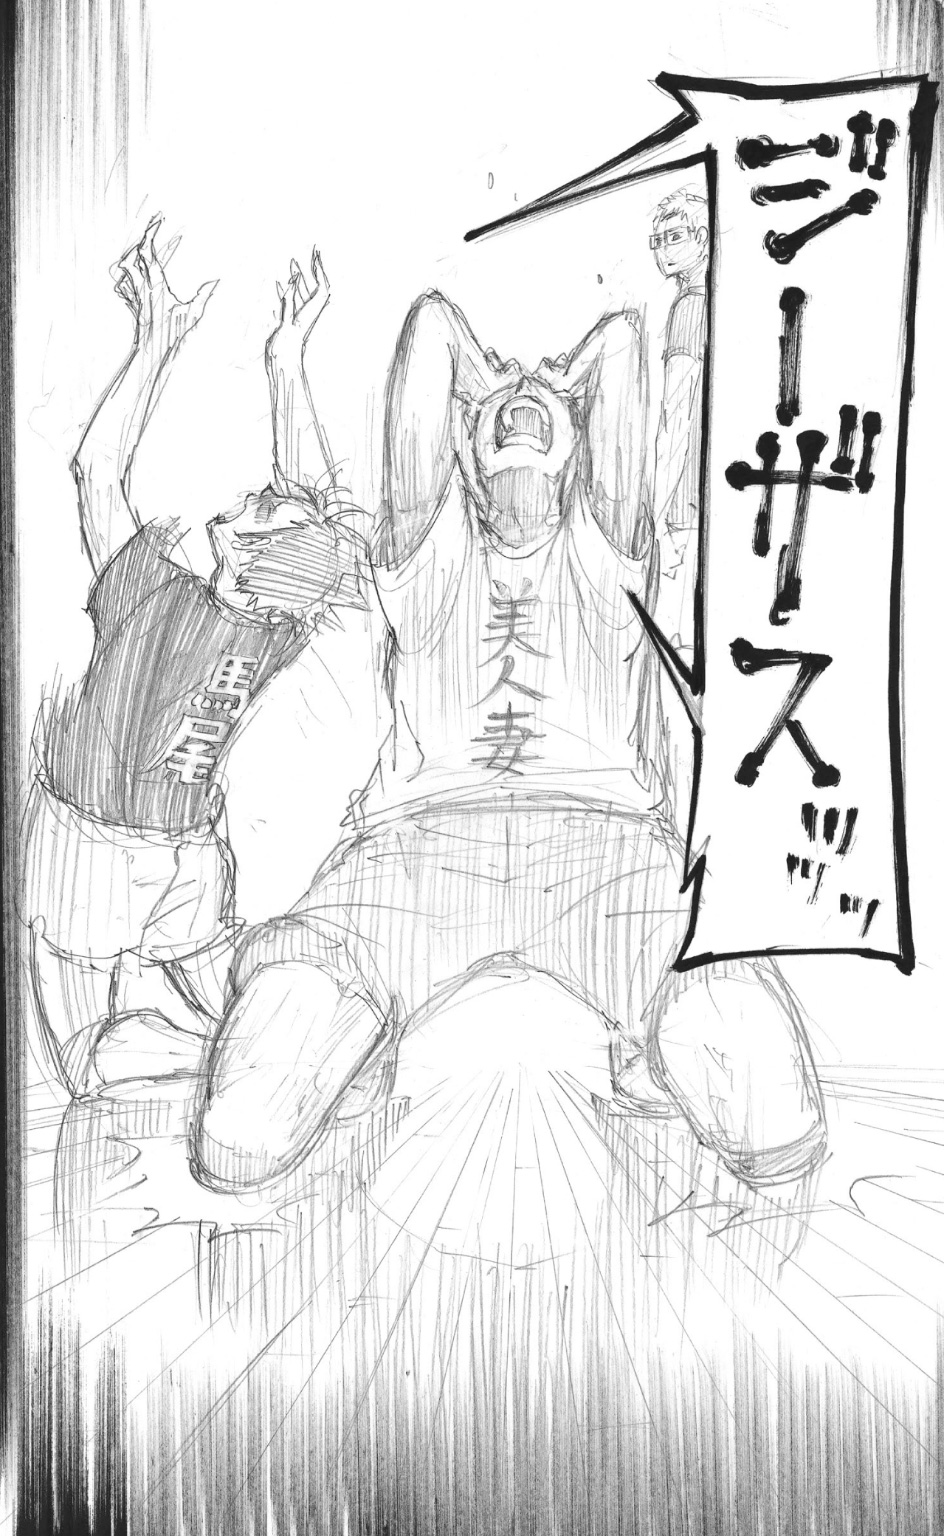 ジーザスッッッ
美人妻